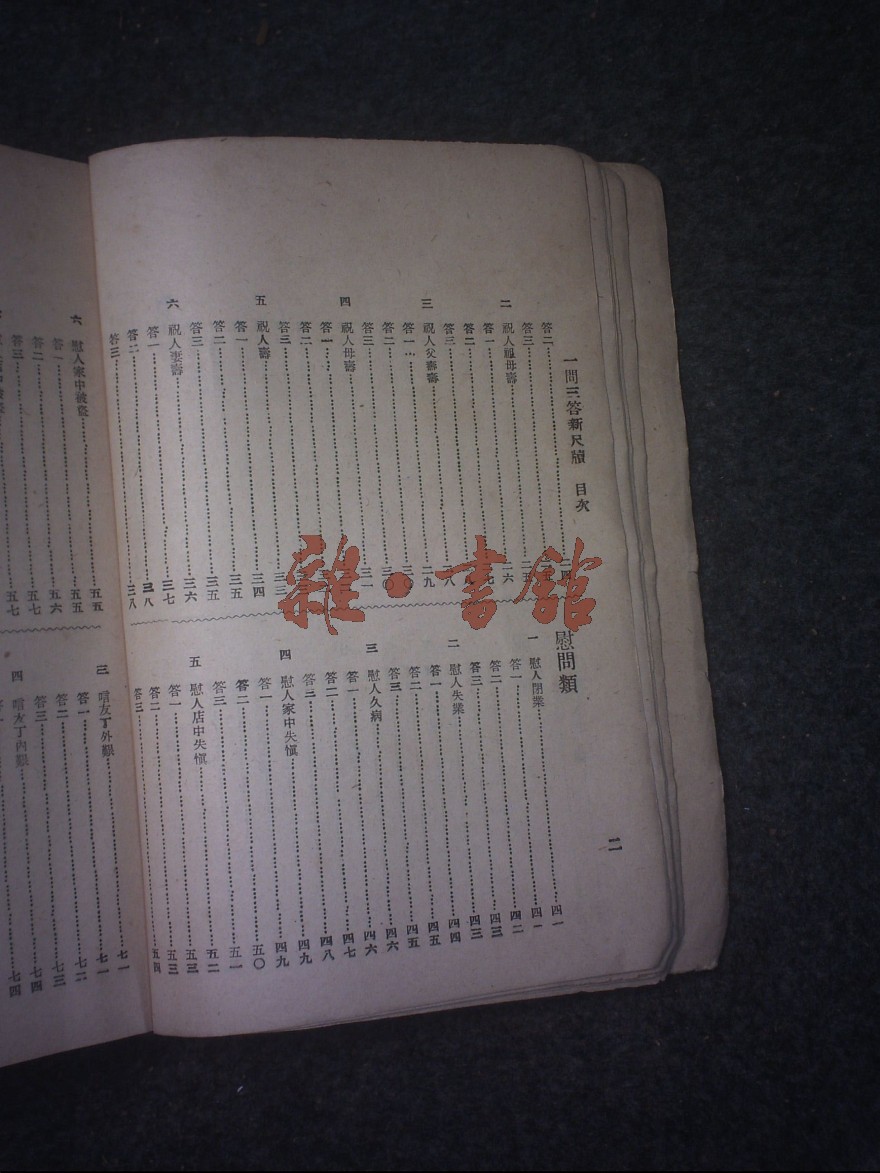 一問三答新尺牘 目次
二
答二……二四
答三……二五
二 祝人祖母壽……二六
答一……七
答二……八
答三……八
三 祝人父壽……二九
答一……三〇
答二……三〇
答三……三一
四 祝人母壽……三
答一……三
答二……
答三……三三
五 祝人壽……三四
答一……三五
答二……三五
答三……三六
六 祝人妻壽……三七
答一……三八
答二……三八
答三……
慰問類
一 慰人閉業……四一
答一……四一
答二……四二
答三……四三
二 慰人失業……四三
答一……四四
答二……四五
答三……四五
三 慰人久病……四六
答一……四六
答二……四七
答三……四八
四 慰人家中失愼……四九
答一……四九
答二……五〇
答三……五一
五 慰人店中失愼……五二
答一……五三
答二……五三
答三……五四
六 慰人家中被盜……五五
答一……五五
答二……五六
答三……五七
五七
三 唁友丁外艱……七一
答一……七一
答二……七二
答三……七三
四 唁友丁內艱……七四
雜·書館